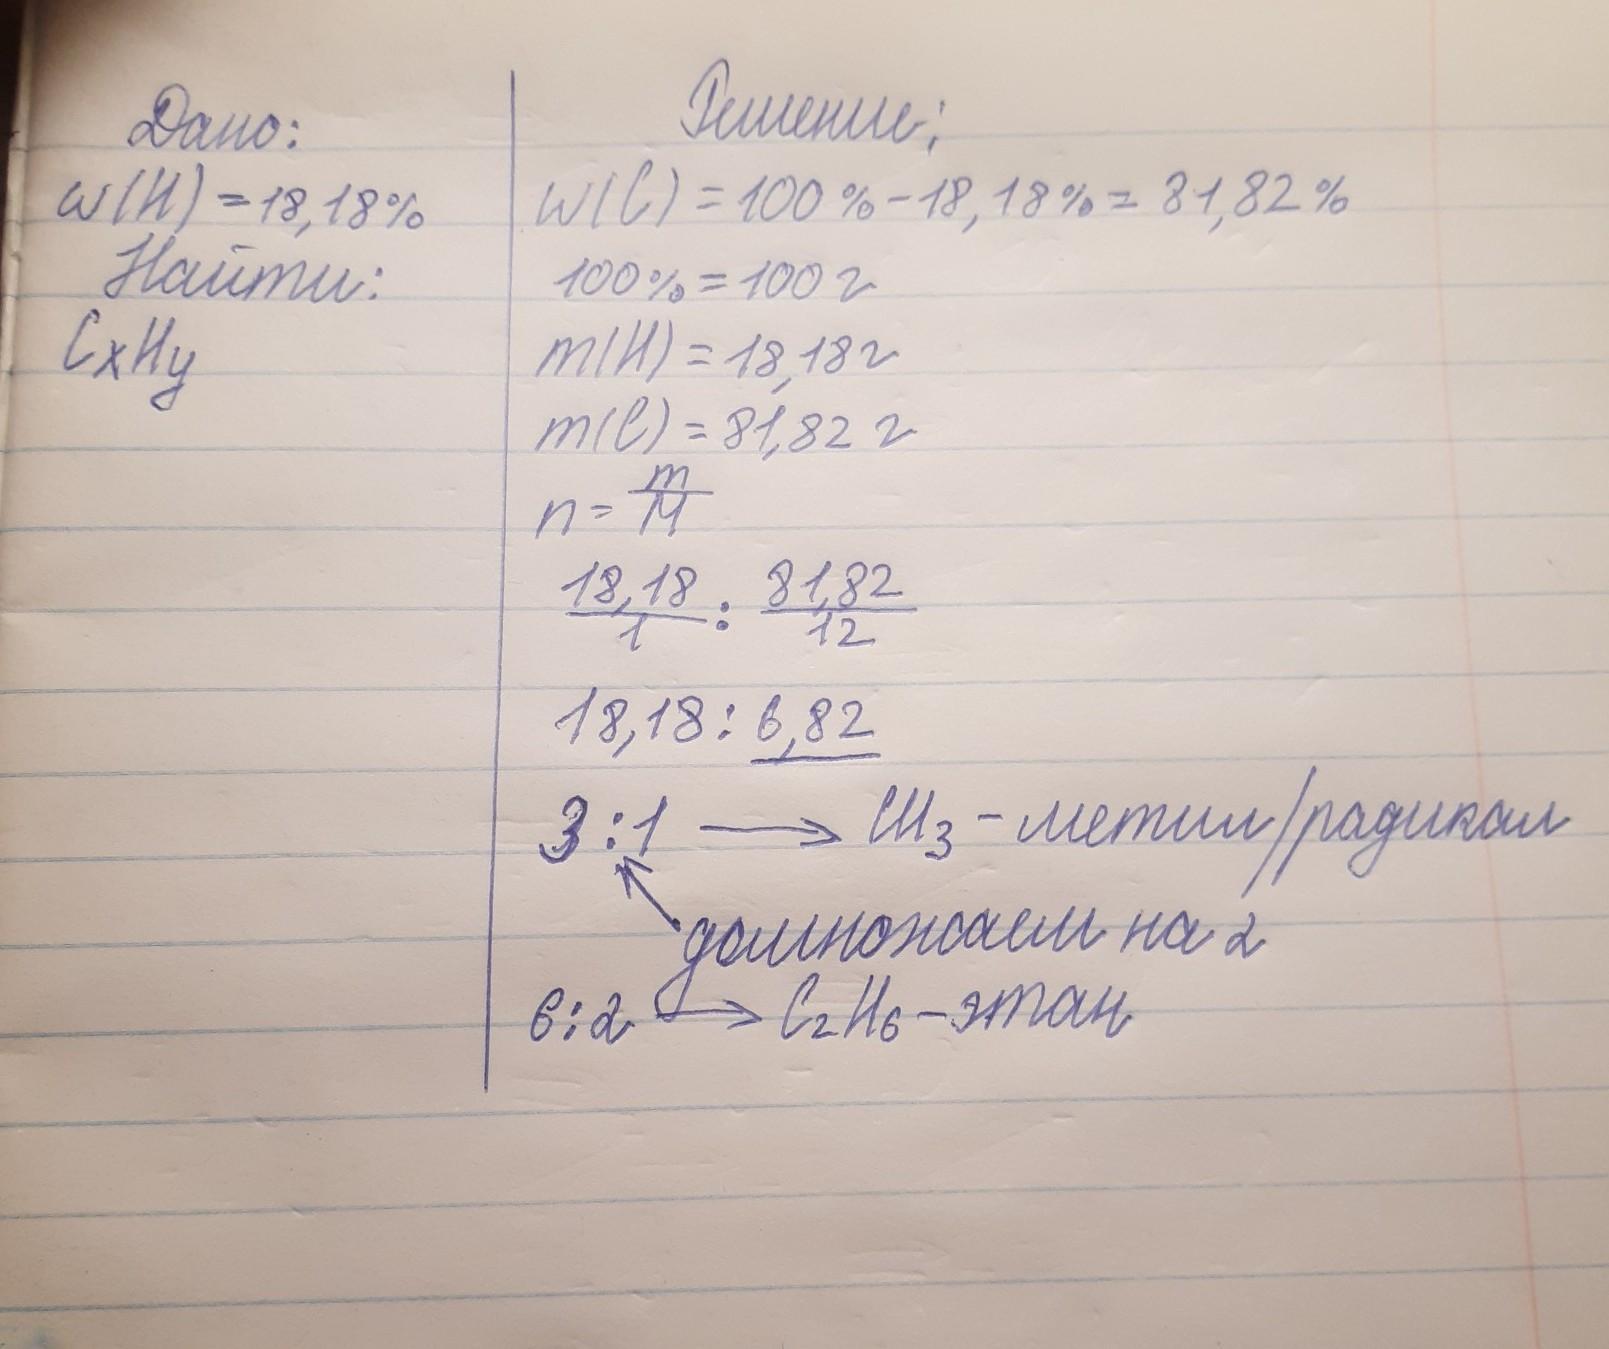 Дано:
w(H) = 18,18%
Найти:
CxHy
Решение:
w(C) = 100% - 18,18% = 81,82%
100% = 100 г
m(H) = 18,18 г
m(C) = 81,82 г
n = m/M
18,18/1 : 81,82/12
18,18 : 6,82
3 : 1 → CH3 - метил/радикал
домножаем на 2
6 : 2 → C2H6 - этан